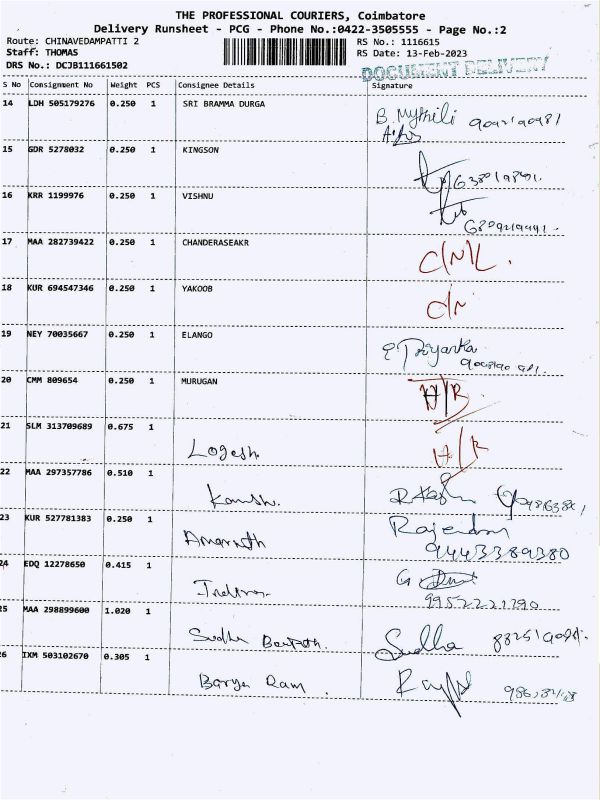 THE PROFESSIONAL COURIERS, Coimbatore
Delivery Runsheet - PCG - Phone No.:0422-3505555 - Page No.:2
Route: CHINAVEDAMPATTI 2 RS No.: 1116615
Staff: THOMAS RS Date: 13-Feb-2023
DRS No.: DCJB111661502 DOCUMENT DELIVERY
S No Consignment No Weight PCS Consignee Details Signature
14 LDH 505179276 0.250 1 SRI BRAMMA DURGA B. Mythili
15 GDR 5278032 0.250 1 KINGSON
16 KRR 1199976 0.250 1 VISHNU
17 MAA 282739422 0.250 1 CHANDERASEAKR C/N/L.
18 KUR 694547346 0.250 1 YAKOOB
19 NEY 70035667 0.250 1 ELANGO Priyanka
20 CMM 809654 0.250 1 MURUGAN H/R
21 SLM 313709689 0.675 1 Logesh H/R
22 MAA 297357786 0.510 1
23 KUR 527781383 0.250 1 Amarnath Rajendran
9443389380
24 EDQ 12278650 0.415 1 G
9952221790
25 MAA 298899600 1.020 1 Sudha Sudha
26 IXM 503102670 0.305 1 Ram